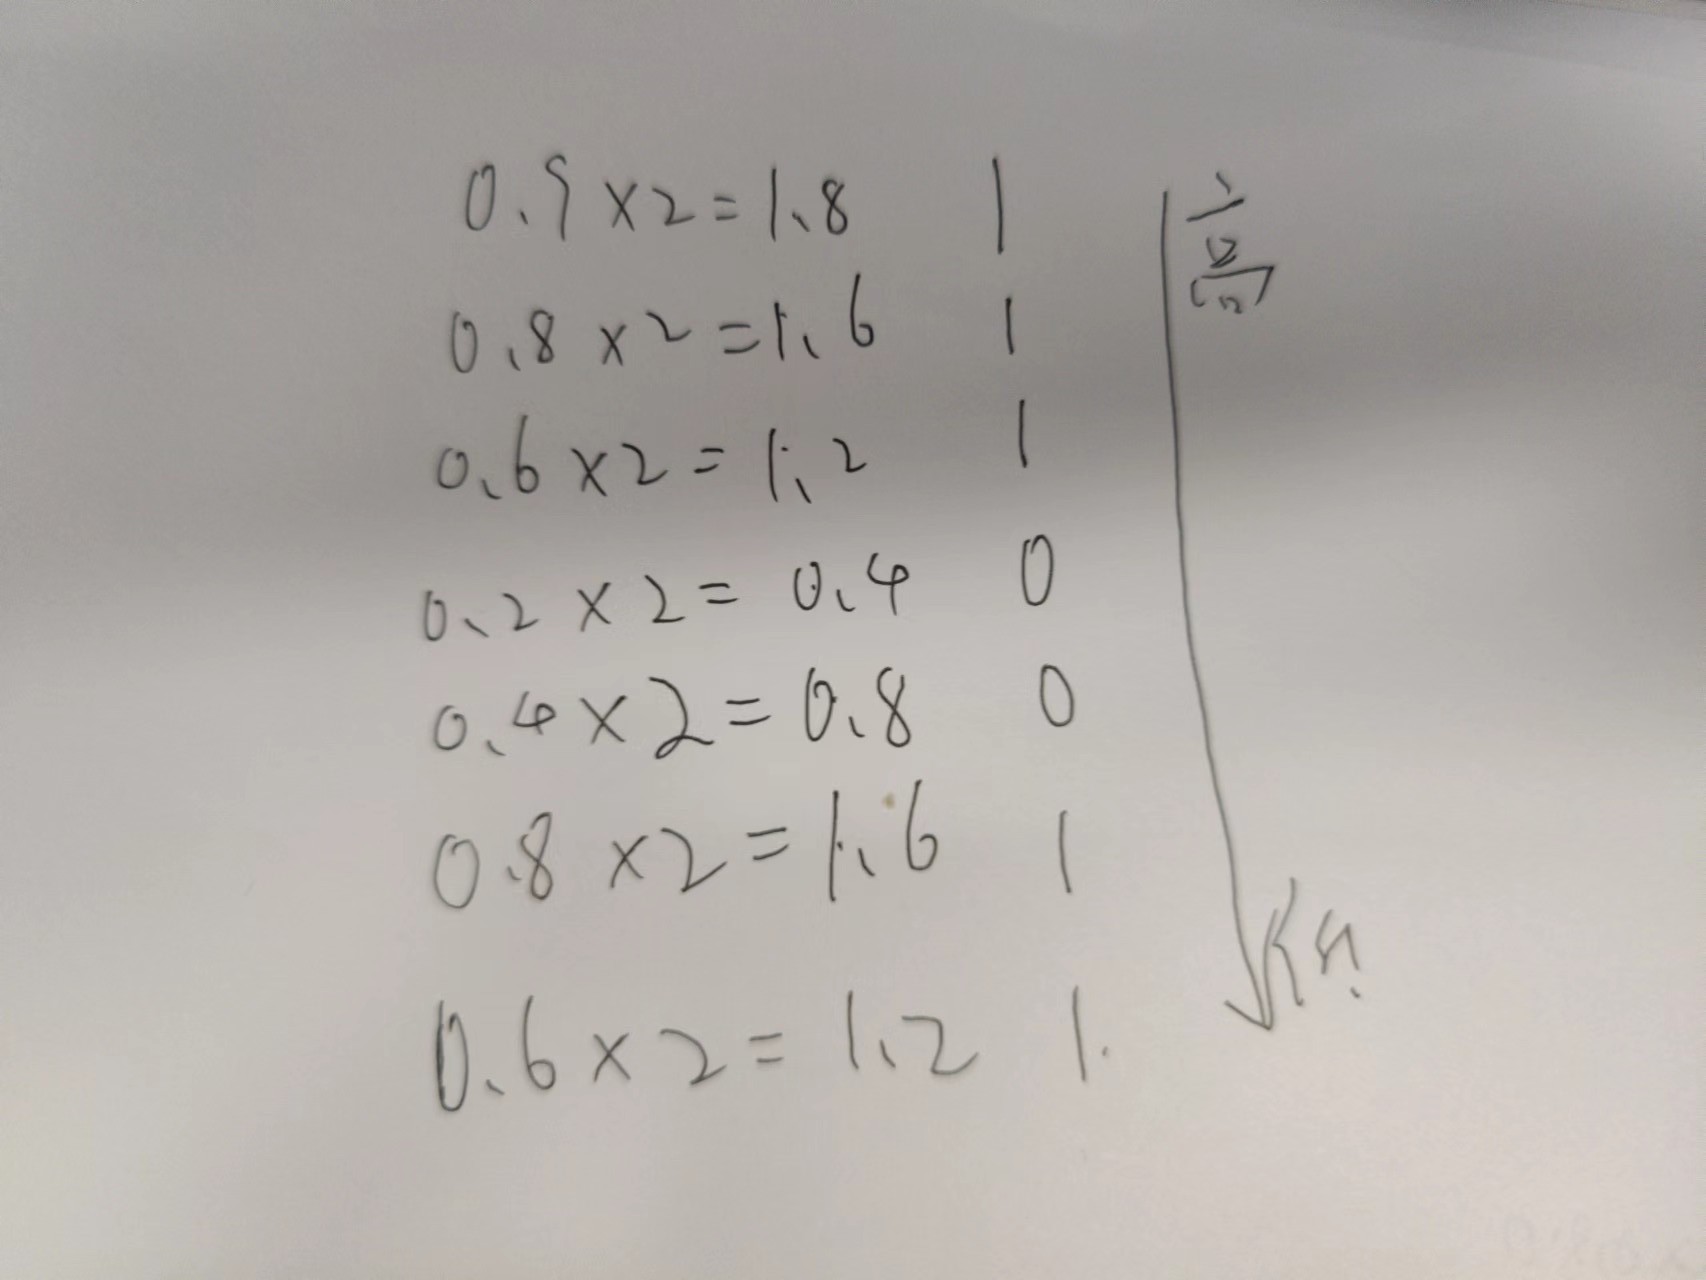 0.9×2=1.8 1 高
0.8×2=1.6 1
0.6×2=1.2 1
0.2×2=0.4 0
0.4×2=0.8 0
0.8×2=1.6 1
0.6×2=1.2 1. 低